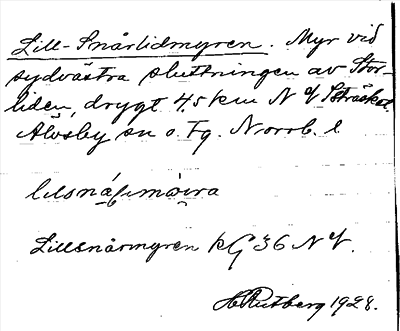 Lill-Snårlidmyren. Myr vid
sydvästra sluttningen av Stor-
liden, drygt 4,5 km N of Storträsket.
Älvsby sn o. Fg. Norrb. l
Lillsnårmyren kG 36 NV.
H Rutberg 1928.